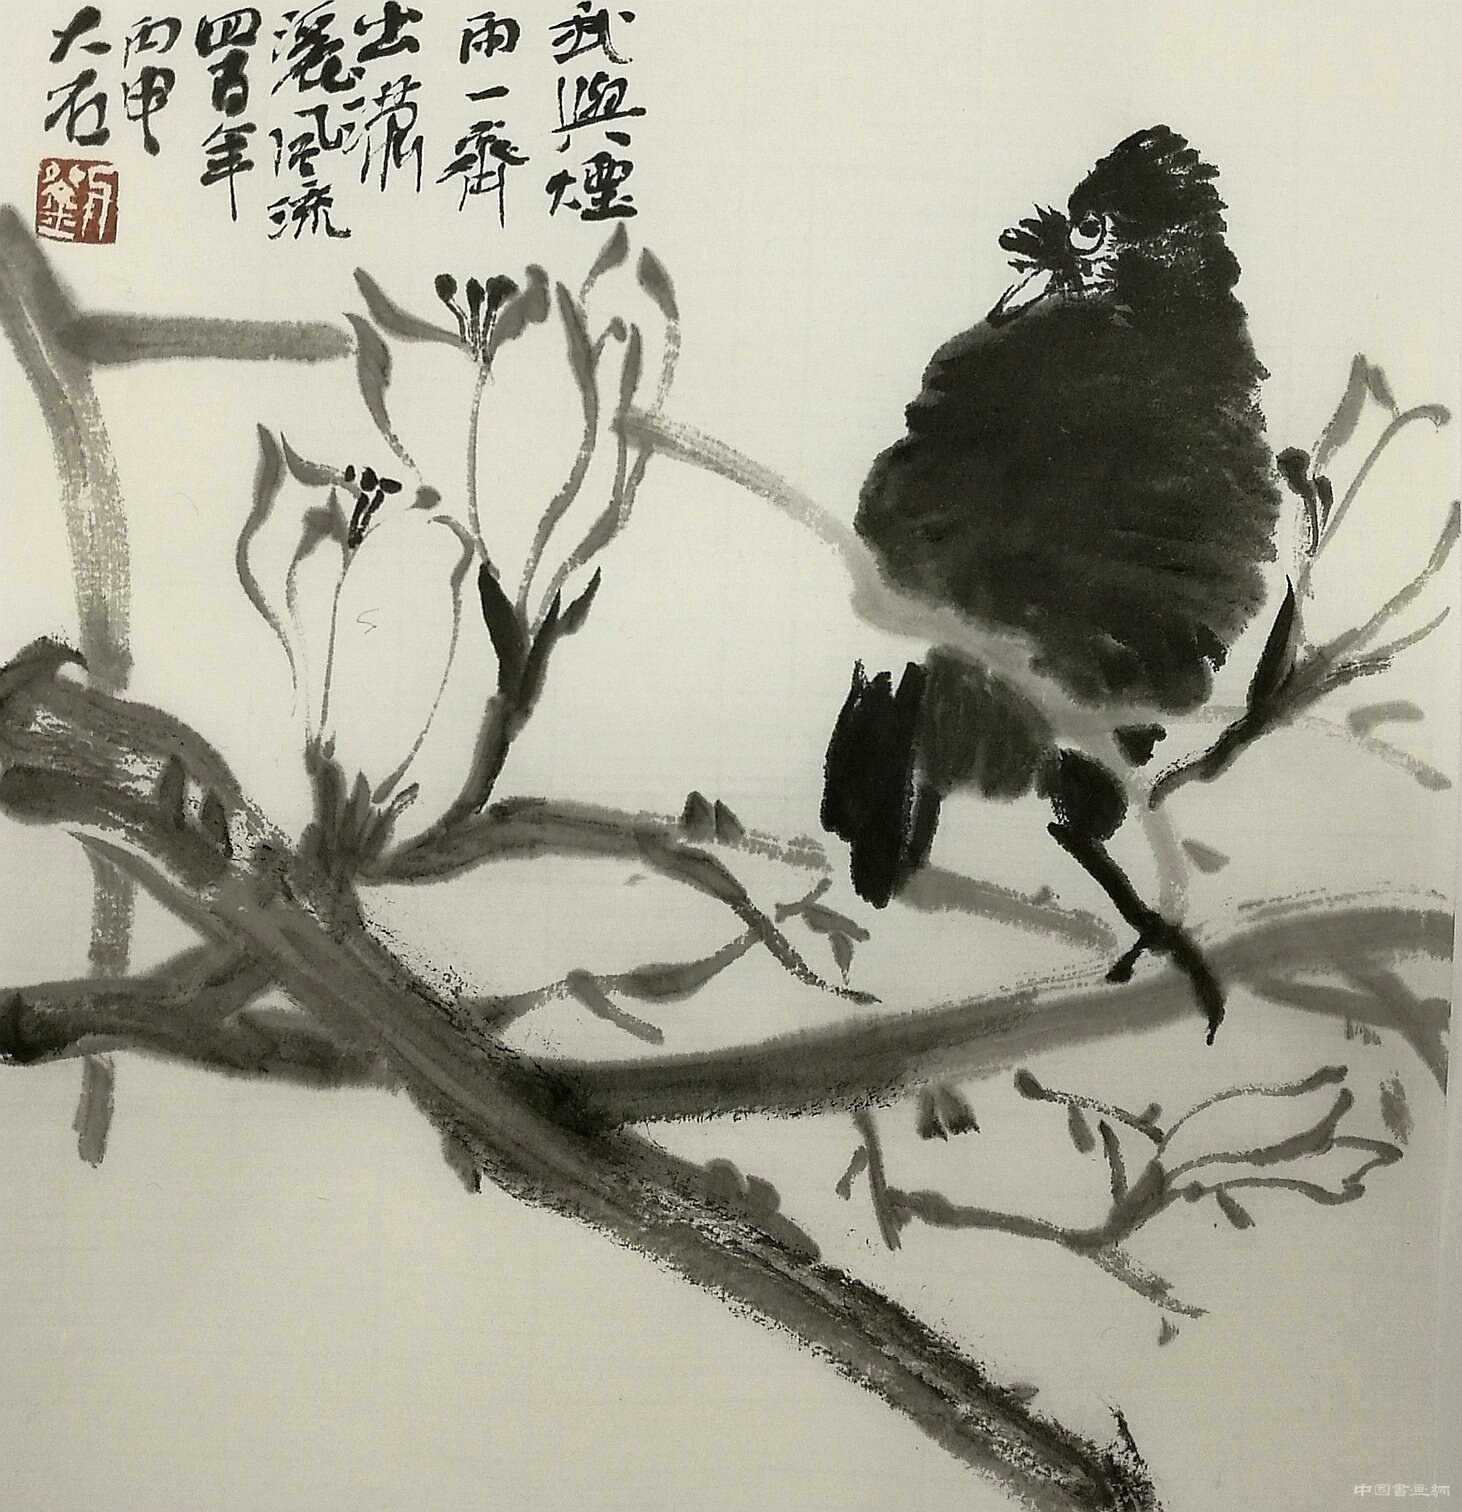 我與煙
雨一齊
出瀟
灑風流
四百年
丙申
大石
中国書画網